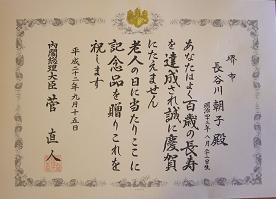 堺市
長谷川朝子殿
あなたはよく百歳の長寿
を達成され誠に慶賀
にたえません
老人の日に当たりここに
記念品を贈りこれを
祝します
平成二十二年九月十五日
内閣総理大臣 菅直人